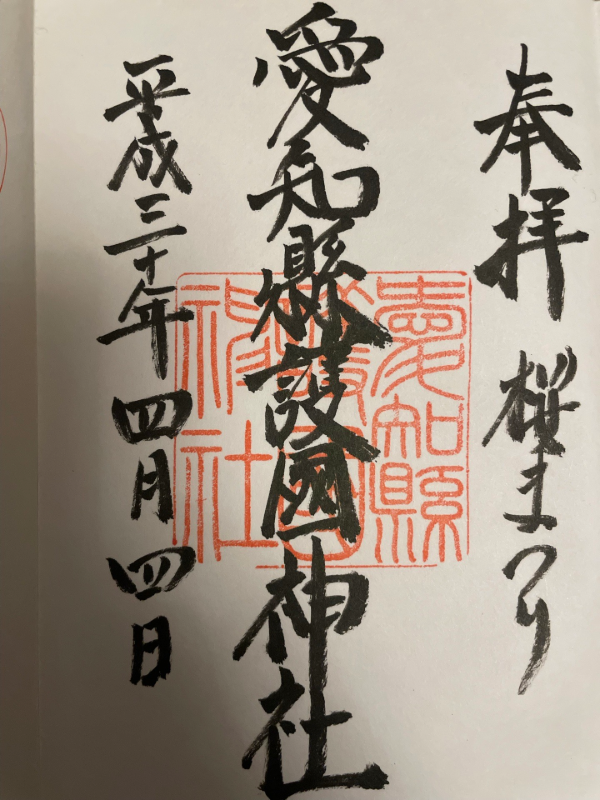 奉拝 桜まつり
愛知縣護國神社
平成三十年四月四日
愛知縣
護國
神社